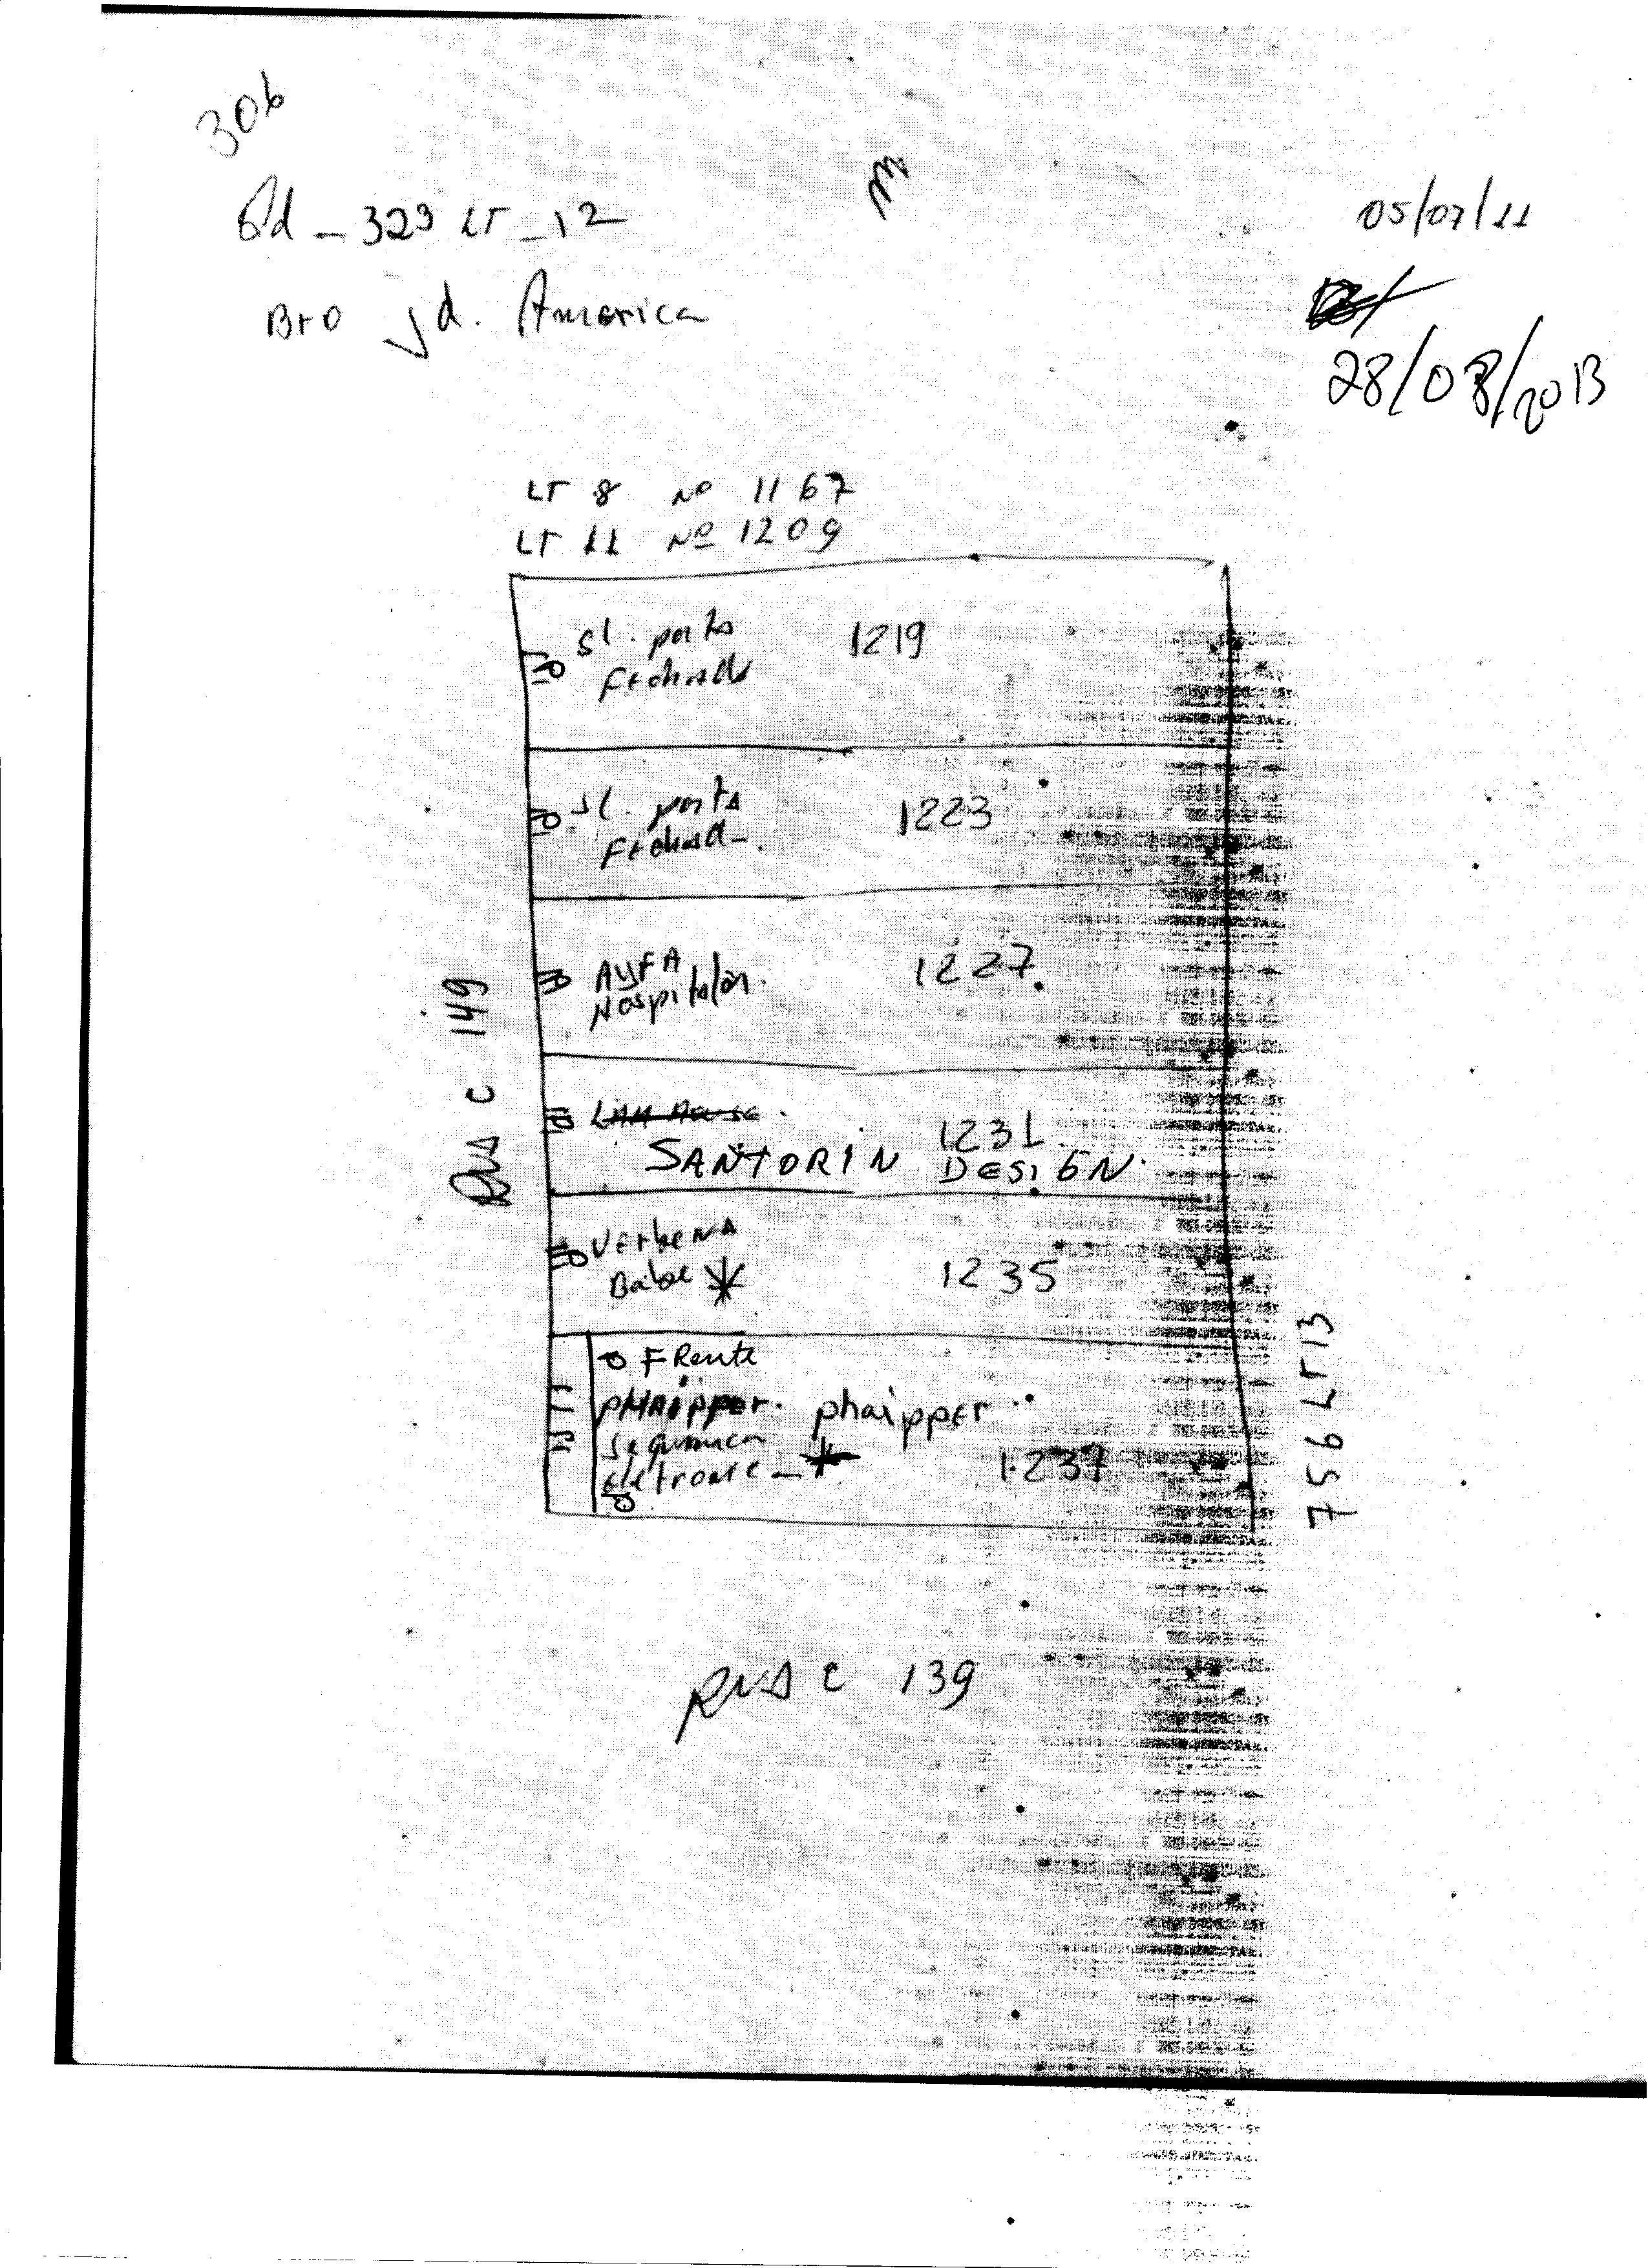 306
Qd _ 329 LT _ 12
05/07/11
Bro Jd. America
28/08/2013
LT 8 Nº 1167
LT 11 Nº 1209
sl. porta 1219
Fechada
sl. porta 1223
Fechada.
AyFA 1227
Hospitalar.
1231
SANTORIN DESIGN
Verbena
Babe * 1235
Frente
pHAipper. phaipper
Segurança
eletronic _ * 1237
RUA C 149
756 LT 13
RUA C 139